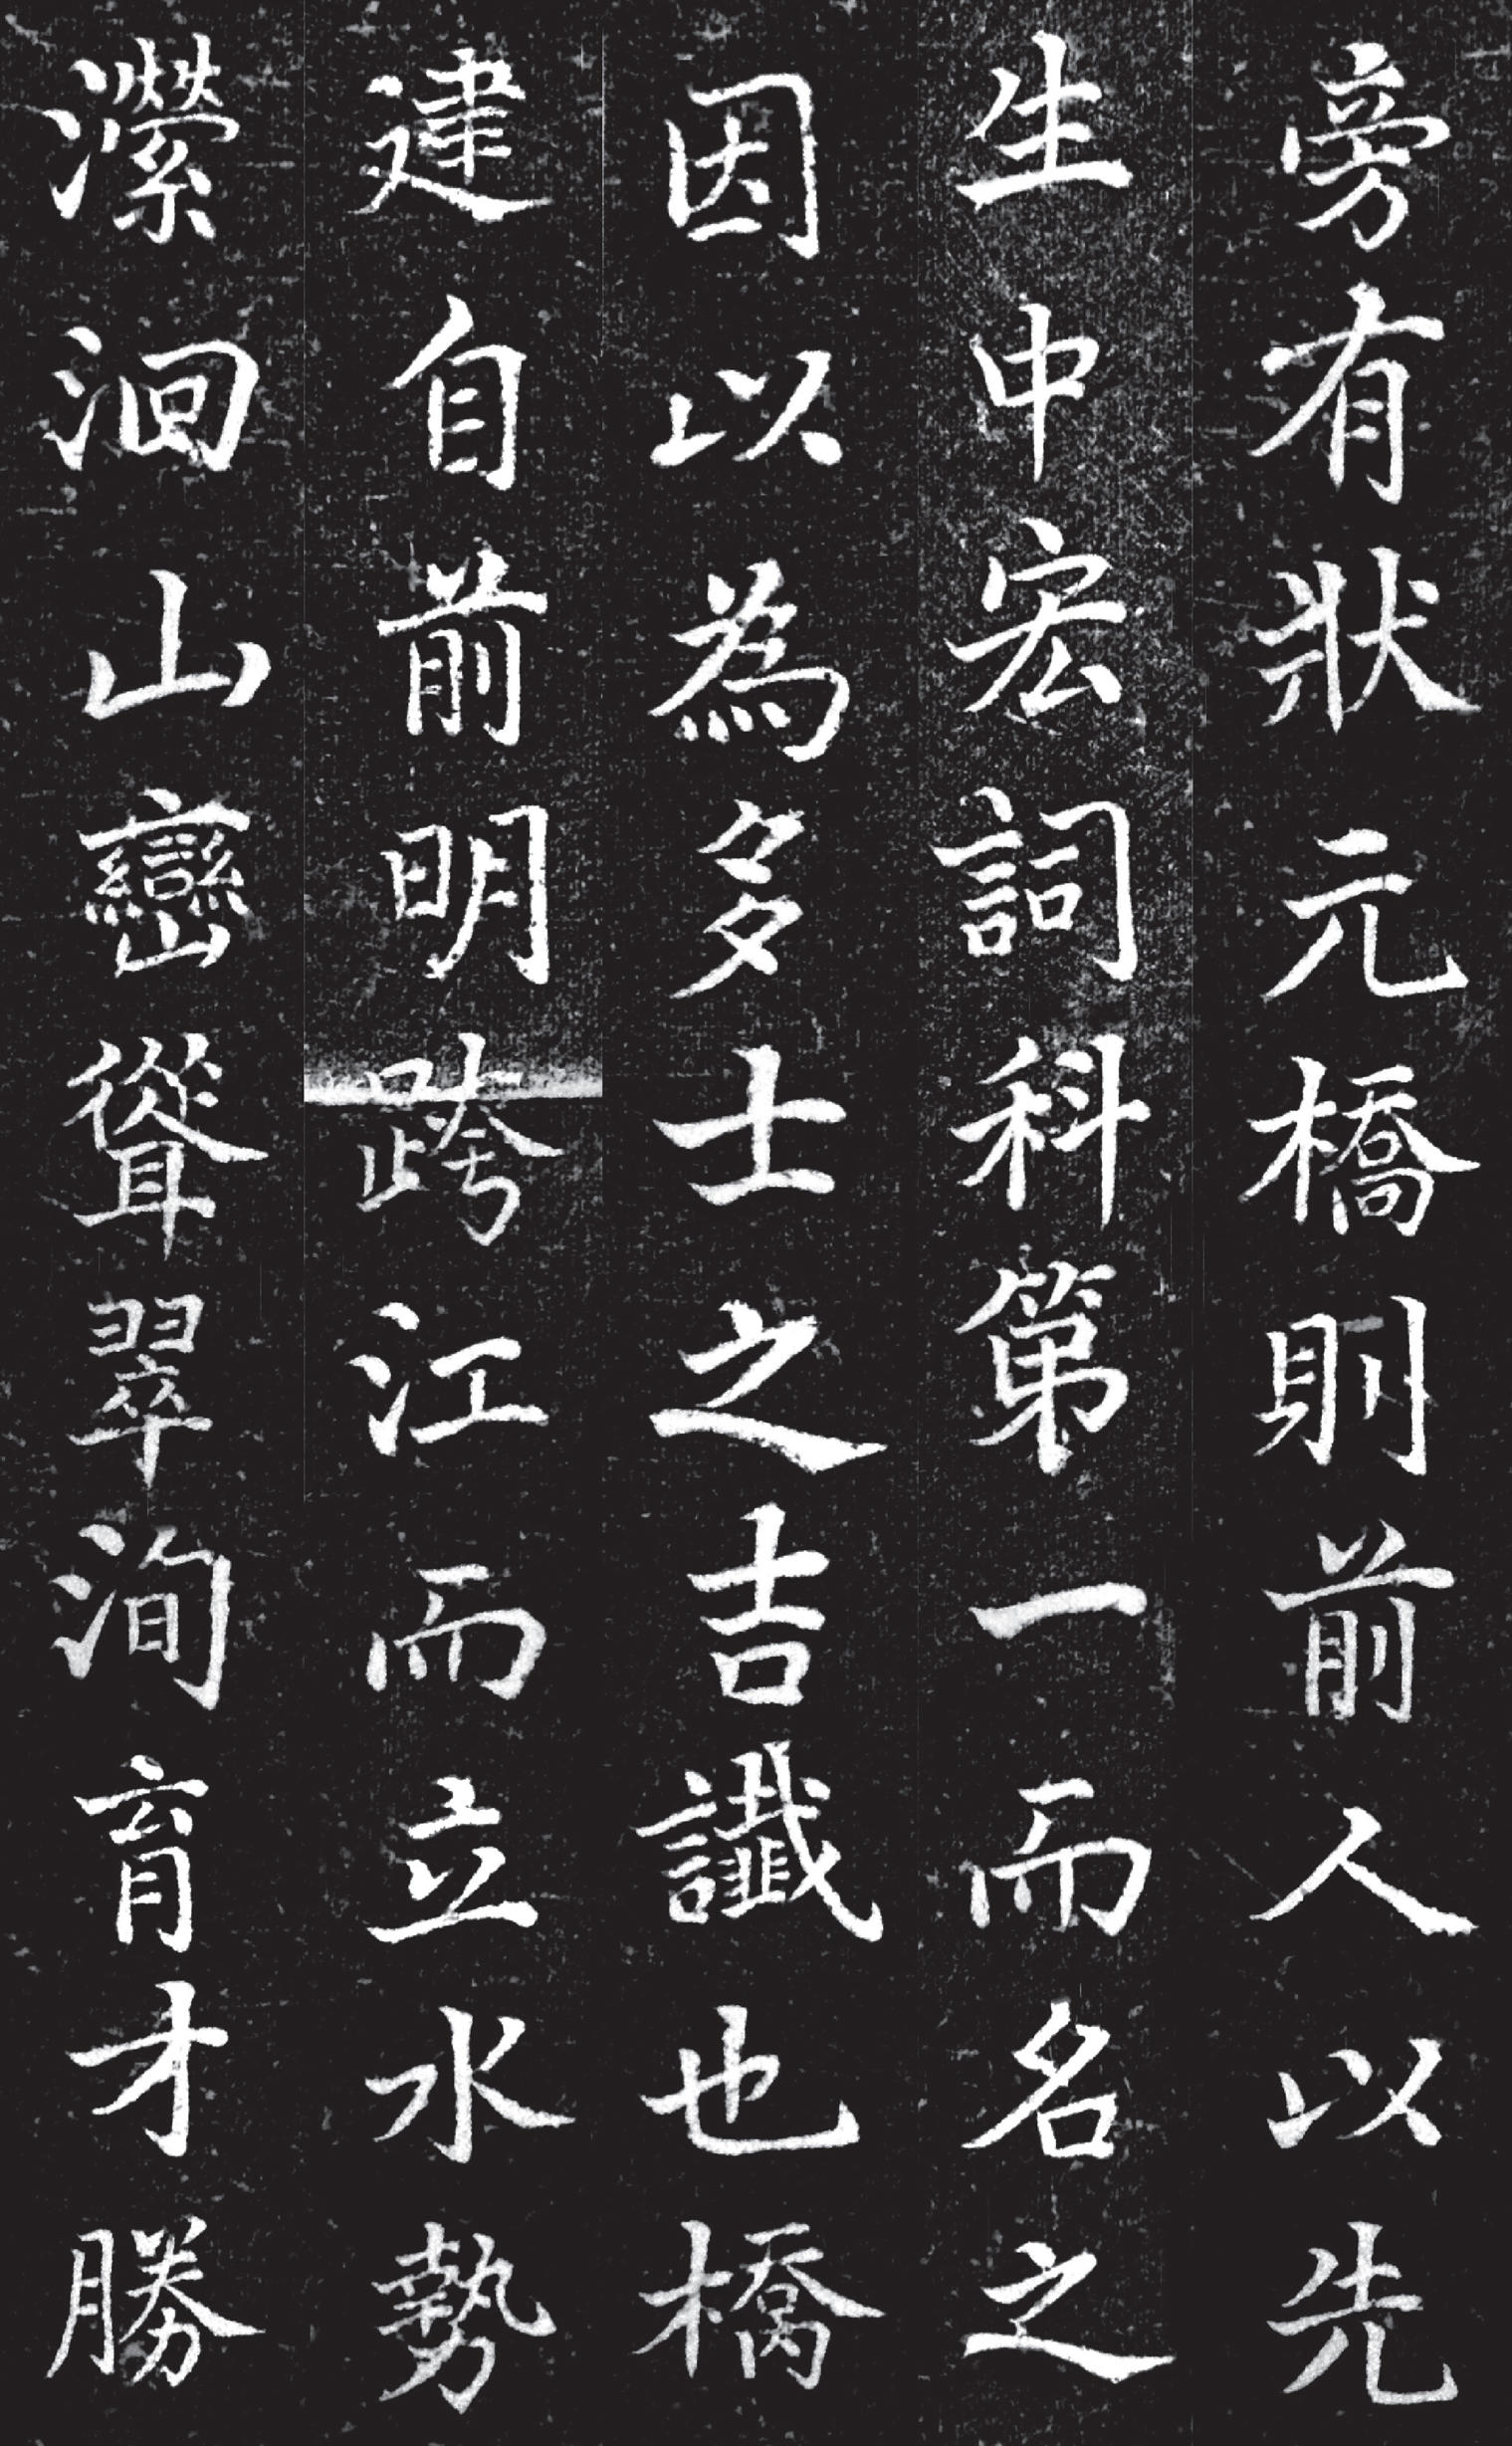 旁有狀元橋則前人以先
生中宏詞科第一而名之
因以為多士之吉讖也橋
建自前明跨江而立水勢
瀠洄山巒聳翠洵育才勝